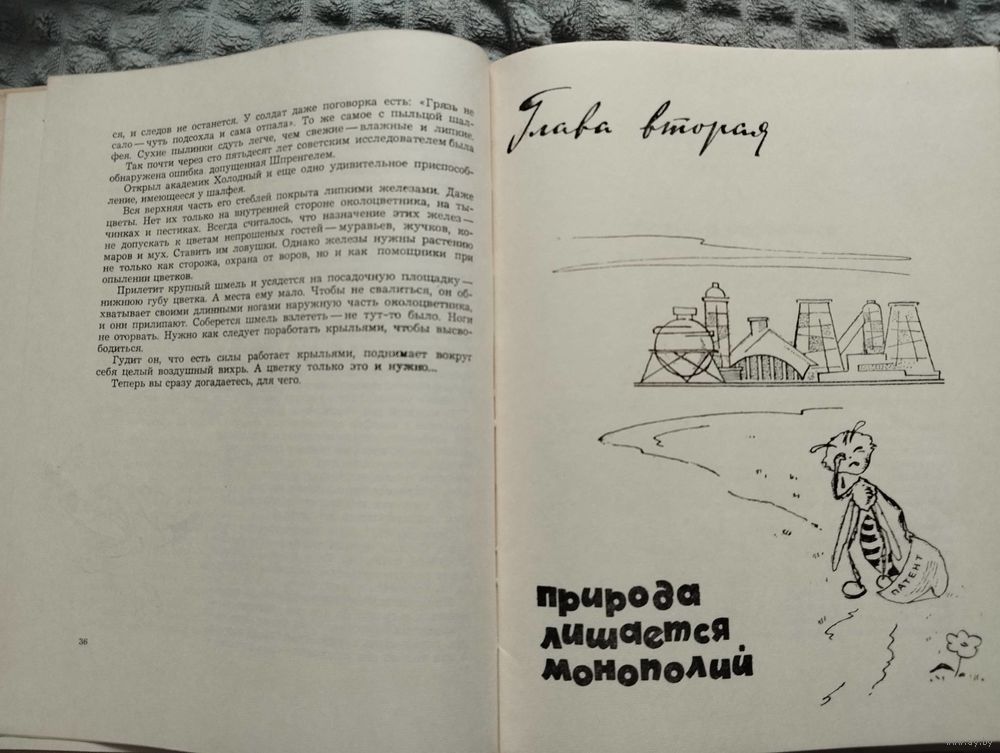 ся, и следов не останется. У солдат даже поговорка есть: «Грязь не
сало — чуть подсохла и сама отпала». То же самое с пыльцой шал-
фея. Сухие пылинки сдуть легче, чем свежие — влажные и липкие.
Так почти через сто пятьдесят лет советским исследователем была
обнаружена ошибка, допущенная Шпренгелем.
Открыл академик Холодный и еще одно удивительное приспособ-
ление, имеющееся у шалфея.
Вся верхняя часть его стеблей покрыта липкими железами. Даже
цветы. Нет их только на внутренней стороне околоцветника, на ты-
чинках и пестиках. Всегда считалось, что назначение этих желез —
не допускать к цветам непрошеных гостей — муравьев, жучков, ко-
маров и мух. Ставить им ловушки. Однако железы нужны растению
не только как сторожа, охрана от воров, но и как помощники при
опылении цветков.
Прилетит крупный шмель и усядется на посадочную площадку —
нижнюю губу цветка. А места ему мало. Чтобы не свалиться, он об-
хватывает своими длинными ногами наружную часть околоцветника,
и они прилипают. Соберется шмель взлететь — не тут-то было. Ноги
не оторвать. Нужно как следует поработать крыльями, чтобы высво-
бодиться.
Гудит он, что есть силы работает крыльями, поднимает вокруг
себя целый воздушный вихрь. А цветку только это и нужно...
Теперь вы сразу догадаетесь, для чего.
36
Глава вторая
ПАТЕНТ
природа
лишается
монополий